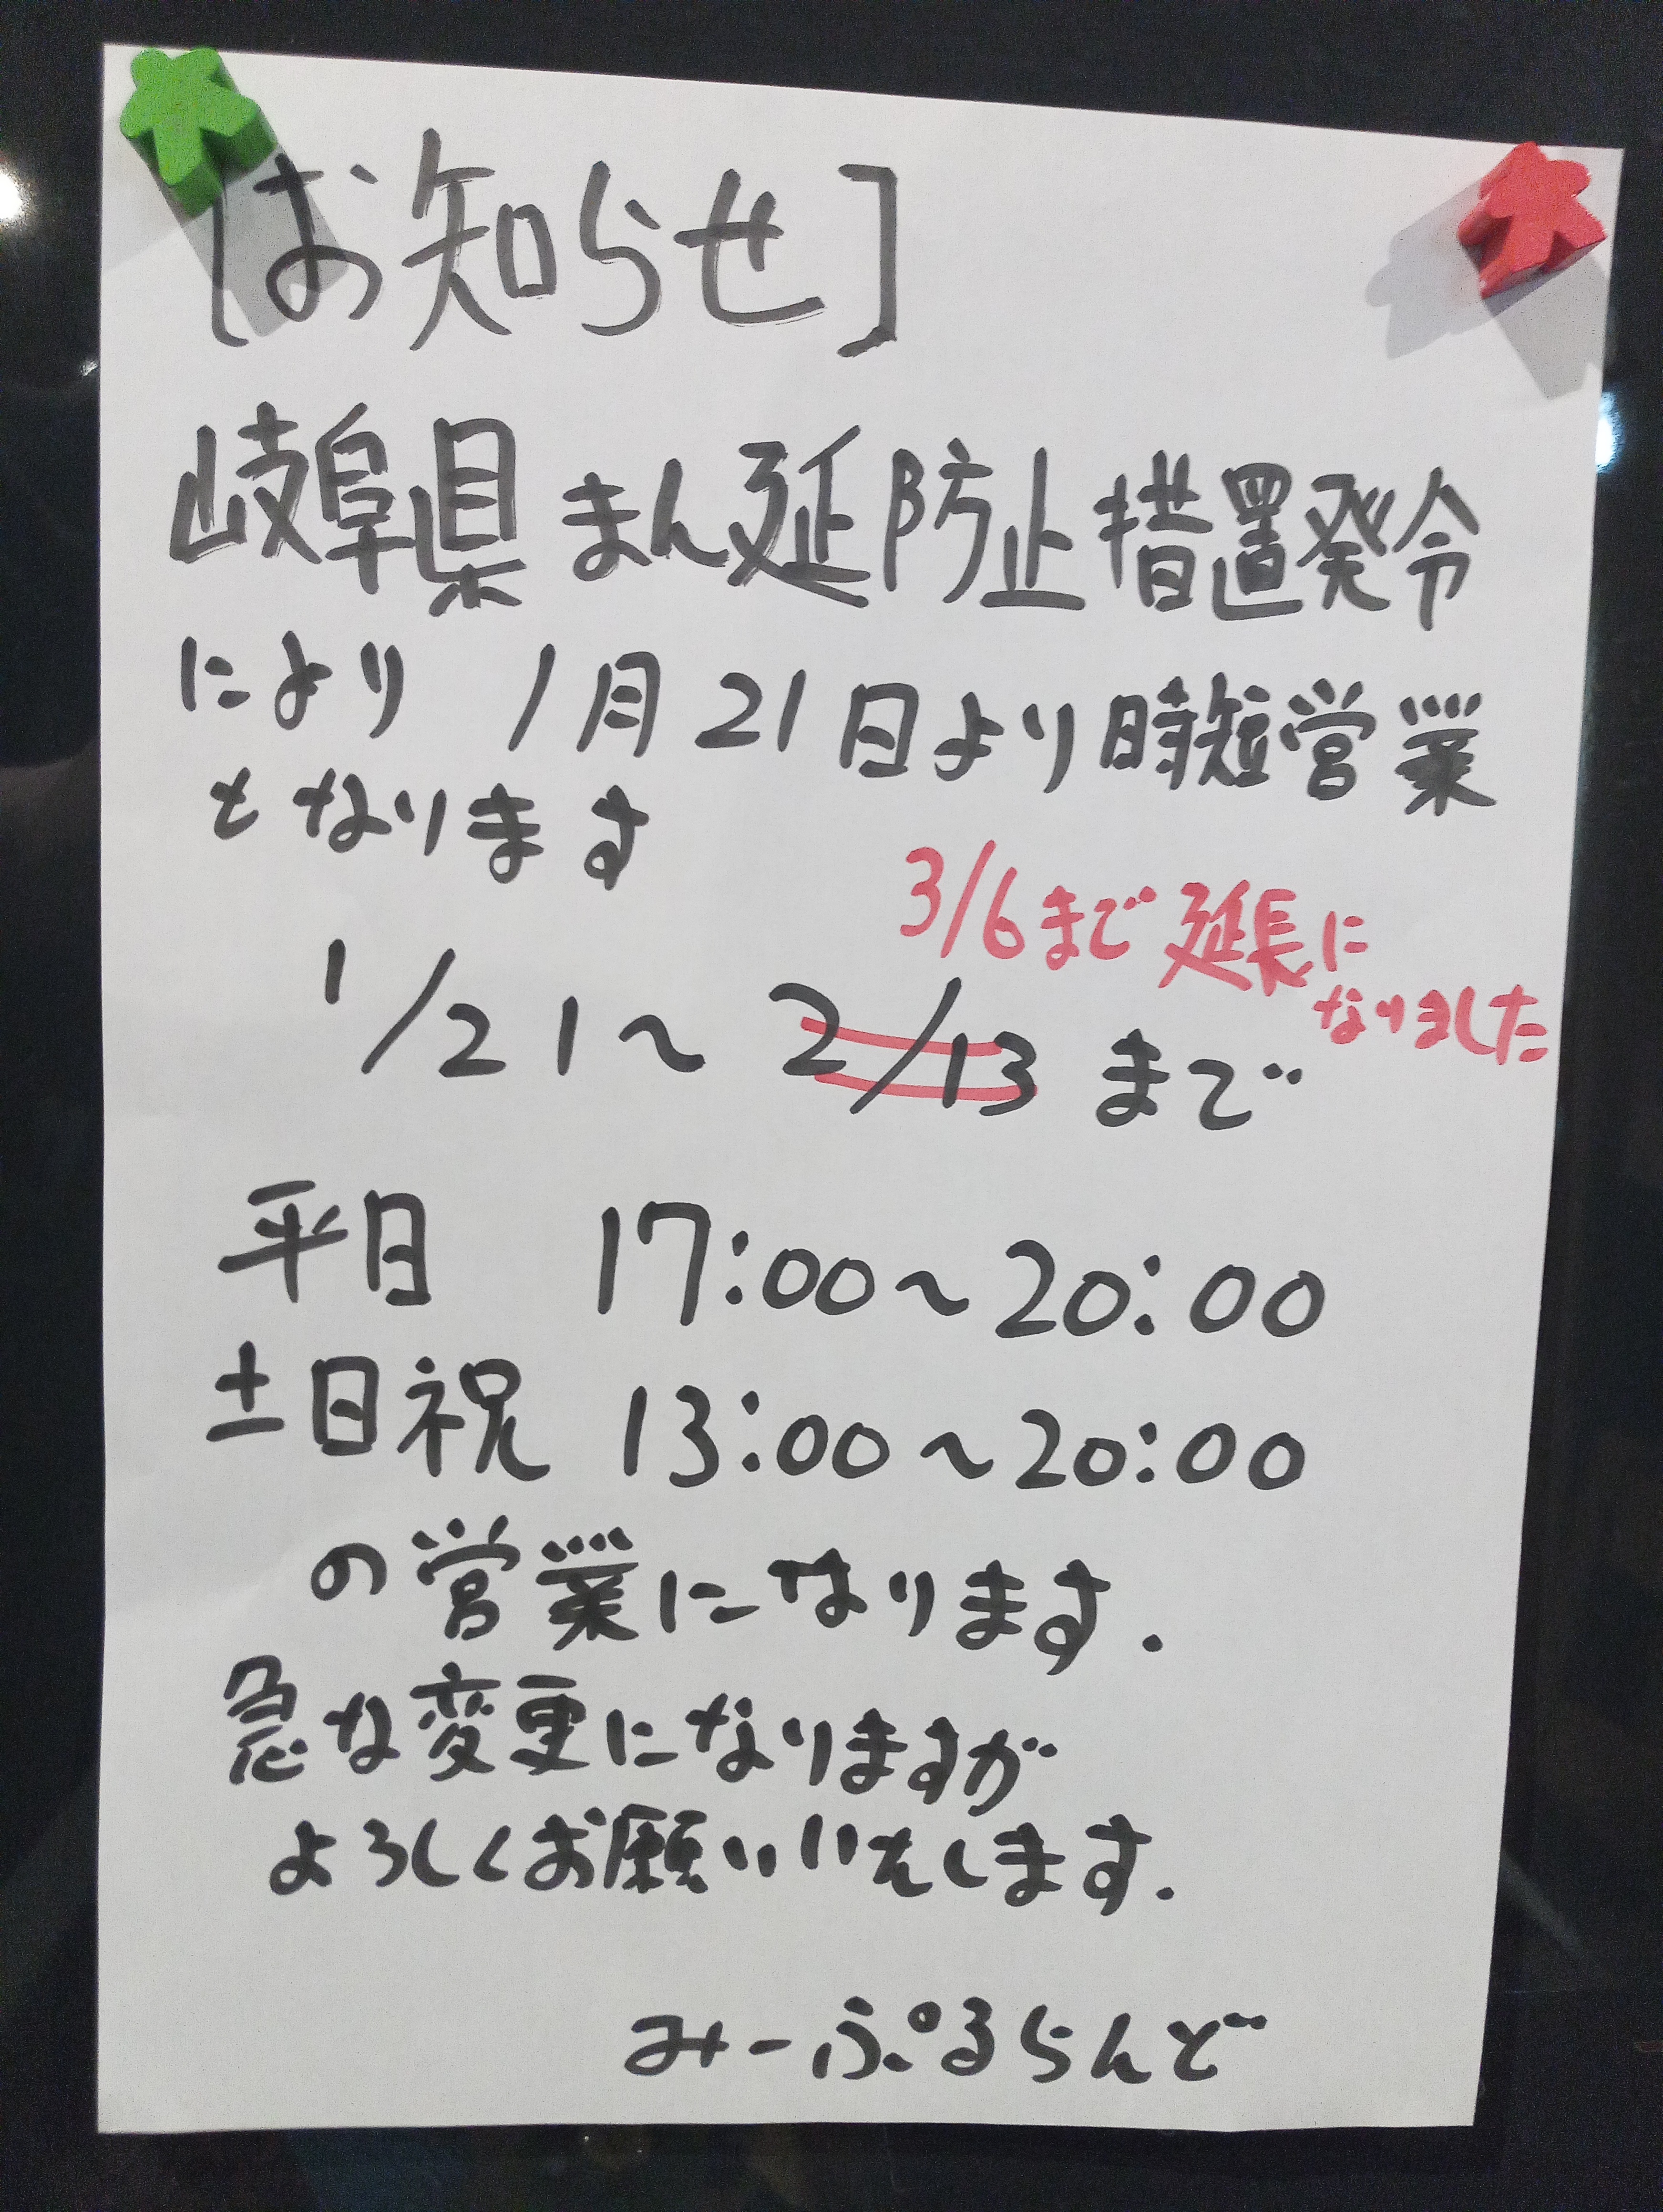 [お知らせ]
岐阜県まん延防止措置発令
により 1月21日より時短営業
となります
3/6まで延長に
なりました
1/21~2/13まで
平日 17:00~20:00
土日祝 13:00~20:00
の営業になります.
急な変更になりますが
よろしくお願いいたします.
みーぷるらんど